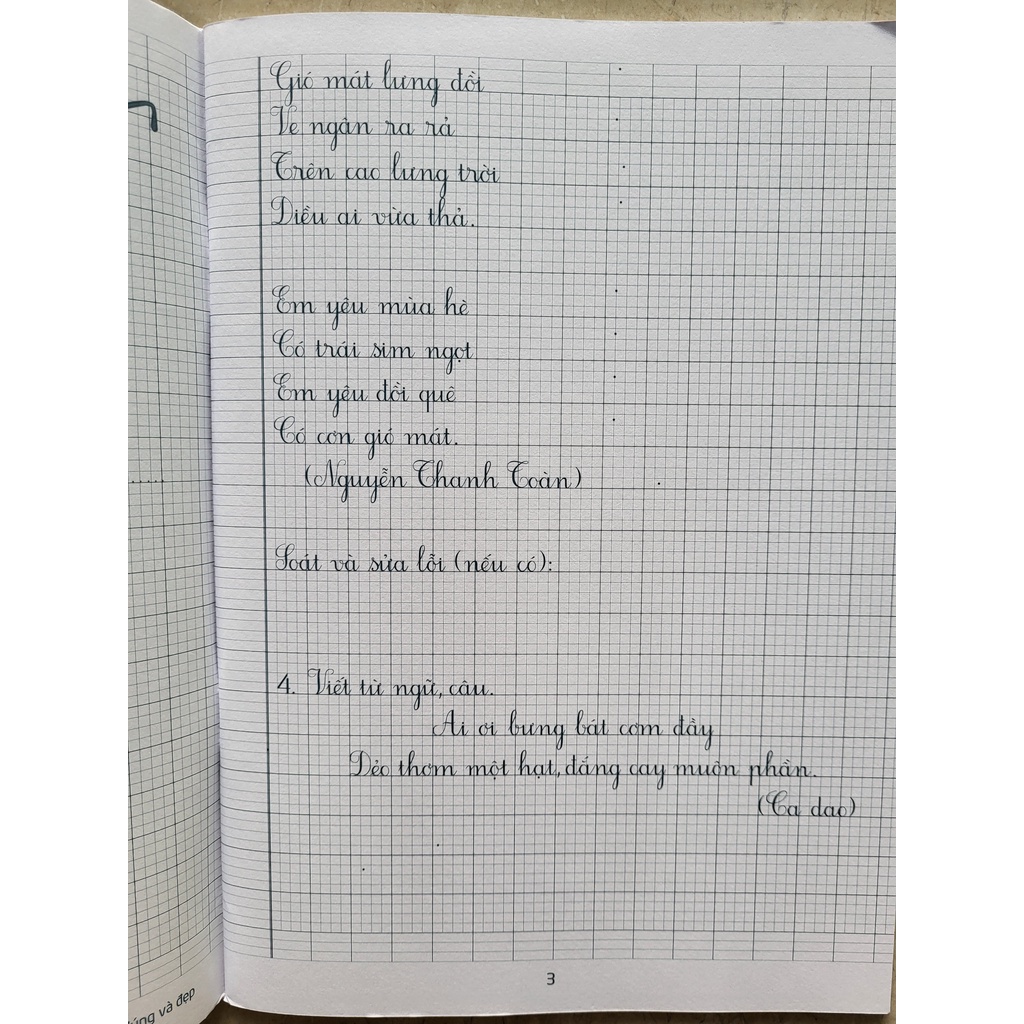 Gió mát lưng đồi
Ve ngân ra rả
Trên cao lưng trời
Diều ai vừa thả.
Em yêu mùa hè
Có trái sim ngọt
Em yêu đồi quê
Có cơn gió mát.
(Nguyễn Thanh Toàn)
Soát và sửa lỗi (nếu có):
4. Viết từ ngữ, câu.
Ai ơi bưng bát cơm đầy
Dẻo thơm một hạt, đắng cay muôn phần.
(Ca dao)
3
và đẹp